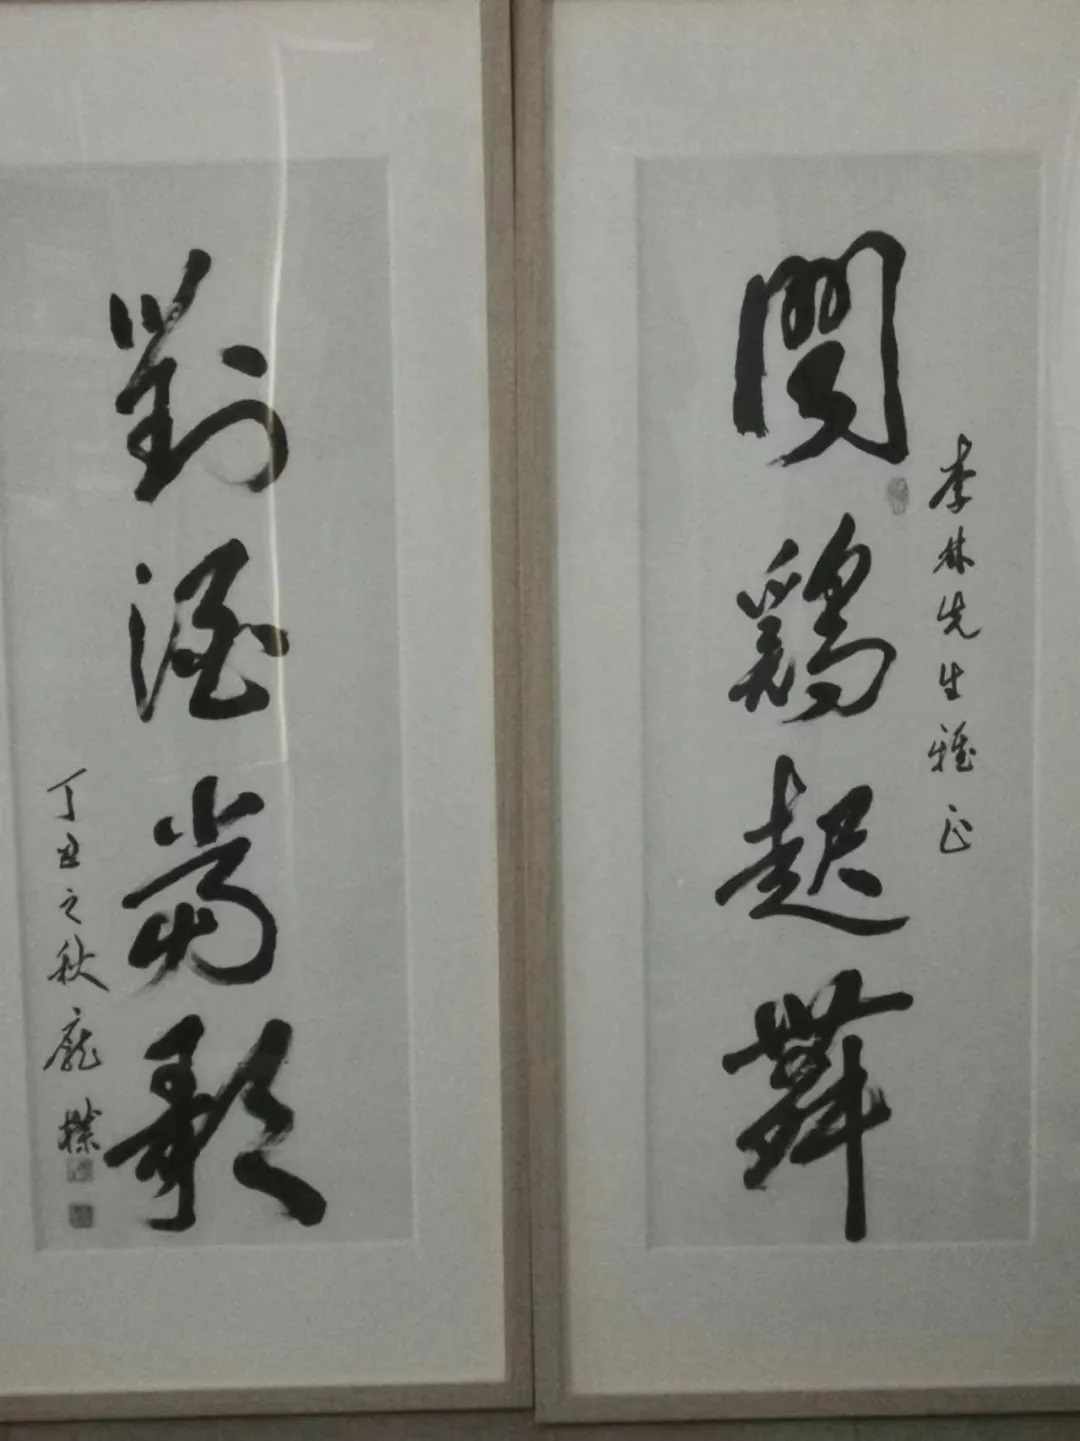 聞鷄起舞
李林先生雅正
對酒當歌
丁丑之秋龐樸